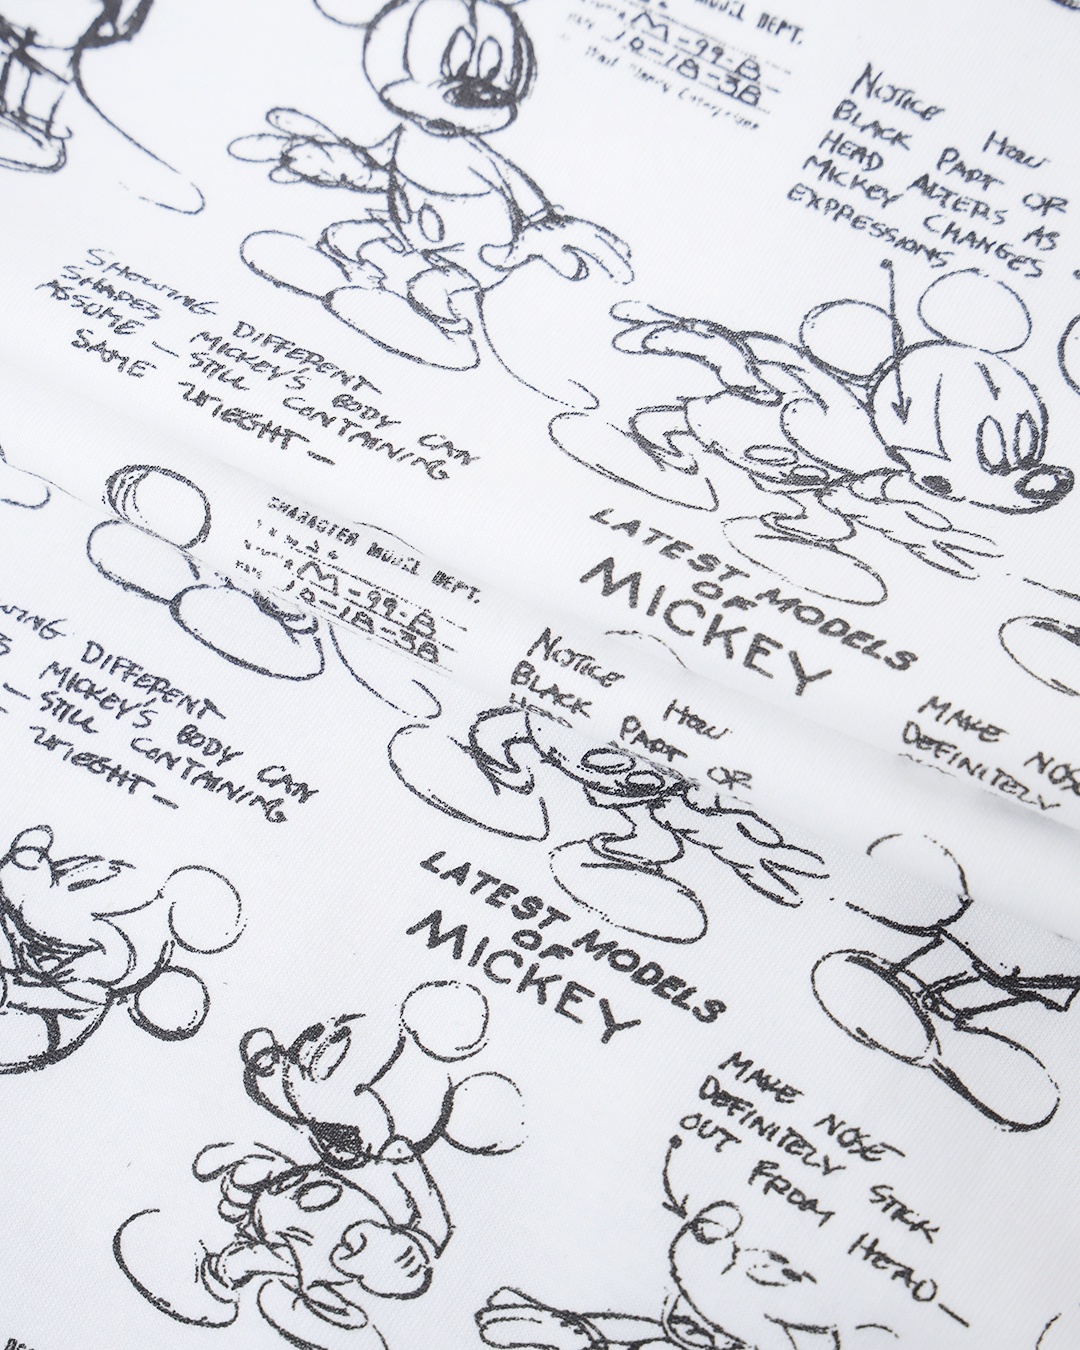 MODEL DEPT.
M-99-B
10-18-38
Walt Disney Enterprises
NOTICE HOW
BLACK PART OR
HEAD ALTERS AS
MICKEY CHANGES
EXPRESSIONS
SHOWING DIFFERENT
SHAPES MICKEY'S BODY CAN
ASSUME — STILL CONTAINING
SAME WIEGHT —
LATEST MODELS
OF
MICKEY
CHARACTER MODEL DEPT.
M-99-B
10-18-38
NOTICE HOW
BLACK PART OR
MAKE NOSE
DEFINITELY
DIFFERENT
MICKEY'S BODY CAN
— STILL CONTAINING
WIEGHT —
LATEST MODELS
OF
MICKEY
MAKE NOSE
DEFINITELY STICK
OUT FROM HEAD —